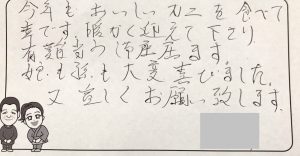 今年もおいしいカニを食べて
幸です 暖かく迎えて下さり
有難う御座居ます。
娘も孫も大変喜びました。
又宜しくお願い致します。